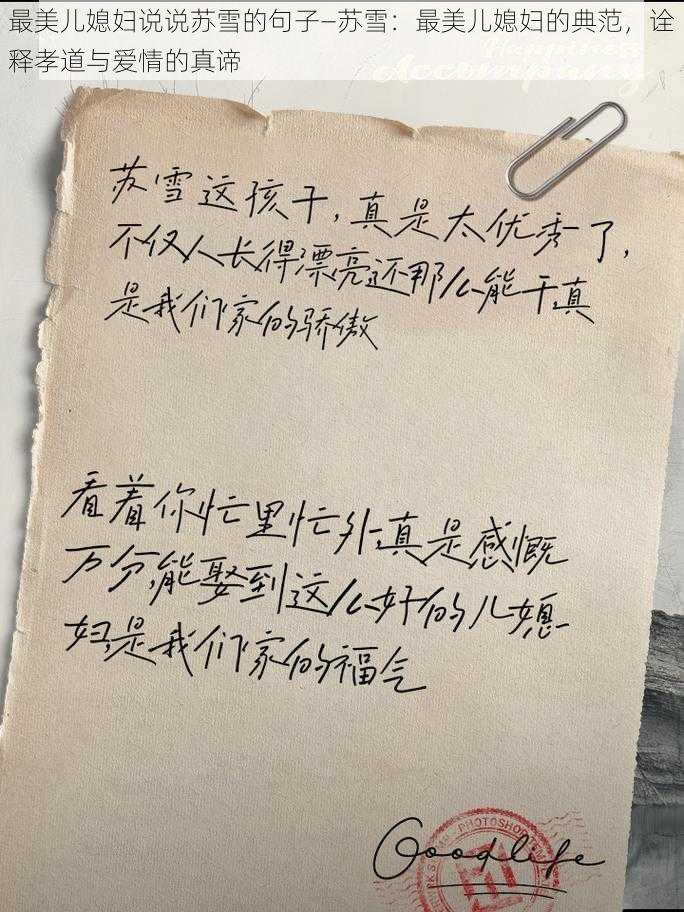 最美儿媳妇说说苏雪的句子—苏雪：最美儿媳妇的典范，诠
释孝道与爱情的真谛
Happiness
Accompany
苏雪这孩子，真是太优秀了，
不仅人长得漂亮还那么能干真
是我们家的骄傲
看着你忙里忙外,真是感慨
万分,能娶到这么好的儿媳
妇,是我们家的福气
PHOTOSHOP
Goodlife